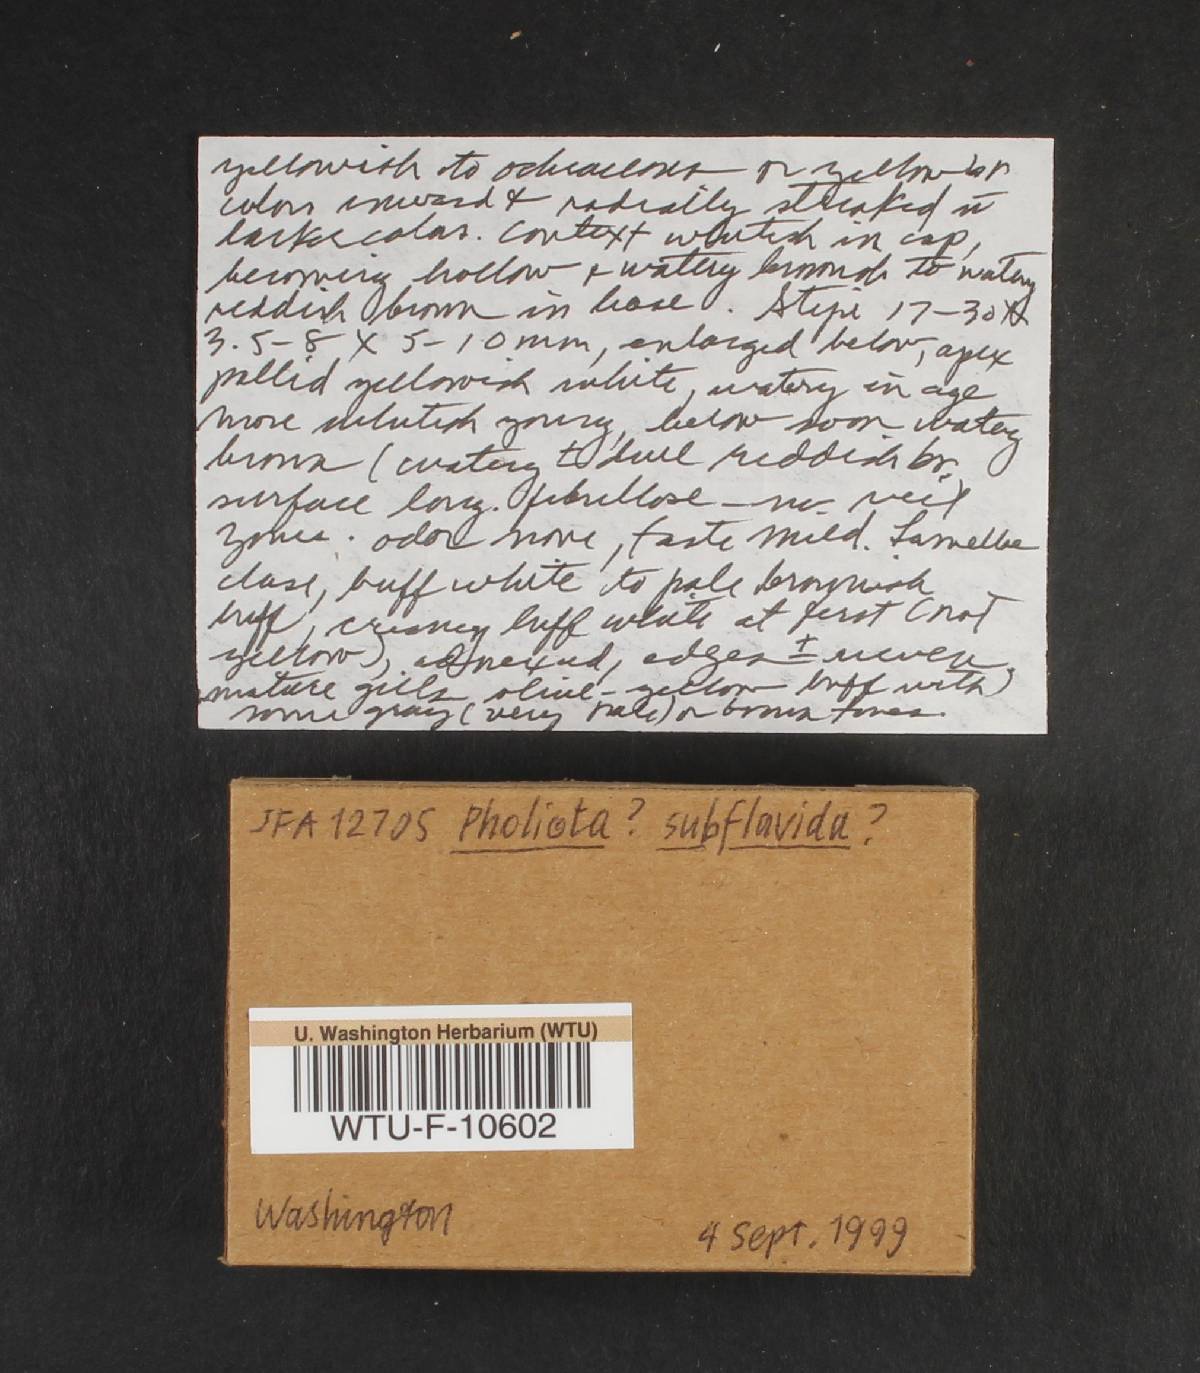 yellowish to ochraceous or yellowish
colors inward & radially streaked w
darker color. Context whitish in cap,
becoming hollow & watery brownish to watery
reddish brown in base. Stipe 17-30 X
3.5-8 X 5-10 mm, enlarged below, apex
pallid yellowish white, watery in age
more whitish young, below soon watery
brown (watery ± dull reddish br.
surface long. fibrillose - no veil
zones. odor none, taste mild. Lamellae
close, buff white to pale brownish
buff, creamy buff white at first (not
yellow), adnexed, edges ± uneven,
mature gills olive-yellow buff with
some gray (very pale) or brown tones.
JFA 12705 Pholiota? subflavida?
U. Washington Herbarium (WTU)
WTU-F-10602
Washington
4 Sept. 1999